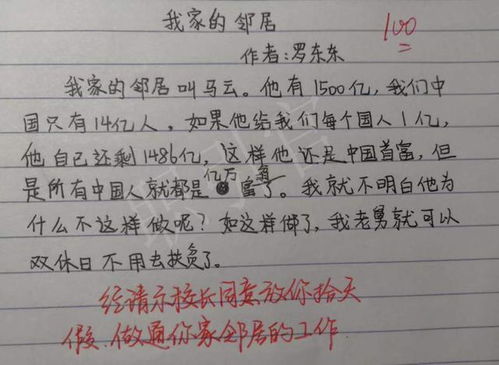 我家的邻居
100
作者:罗东东
我家的邻居叫马云。他有1500亿,我们中
国只有14亿人。如果他给我们每个国人1亿,
他自己还剩1486亿,这样他还是中国首富,但
是所有中国人就都是亿万富翁了。我就不明白他为
什么不这样做呢?如这样做了,我老舅就可以
双休日不用去扶贫了。
经请示校长同意放你拾天
假,做通你家邻居的工作